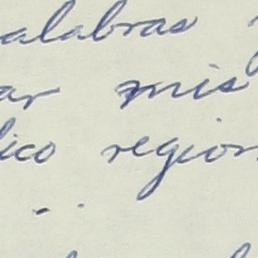 alabras
ar mis
lico region